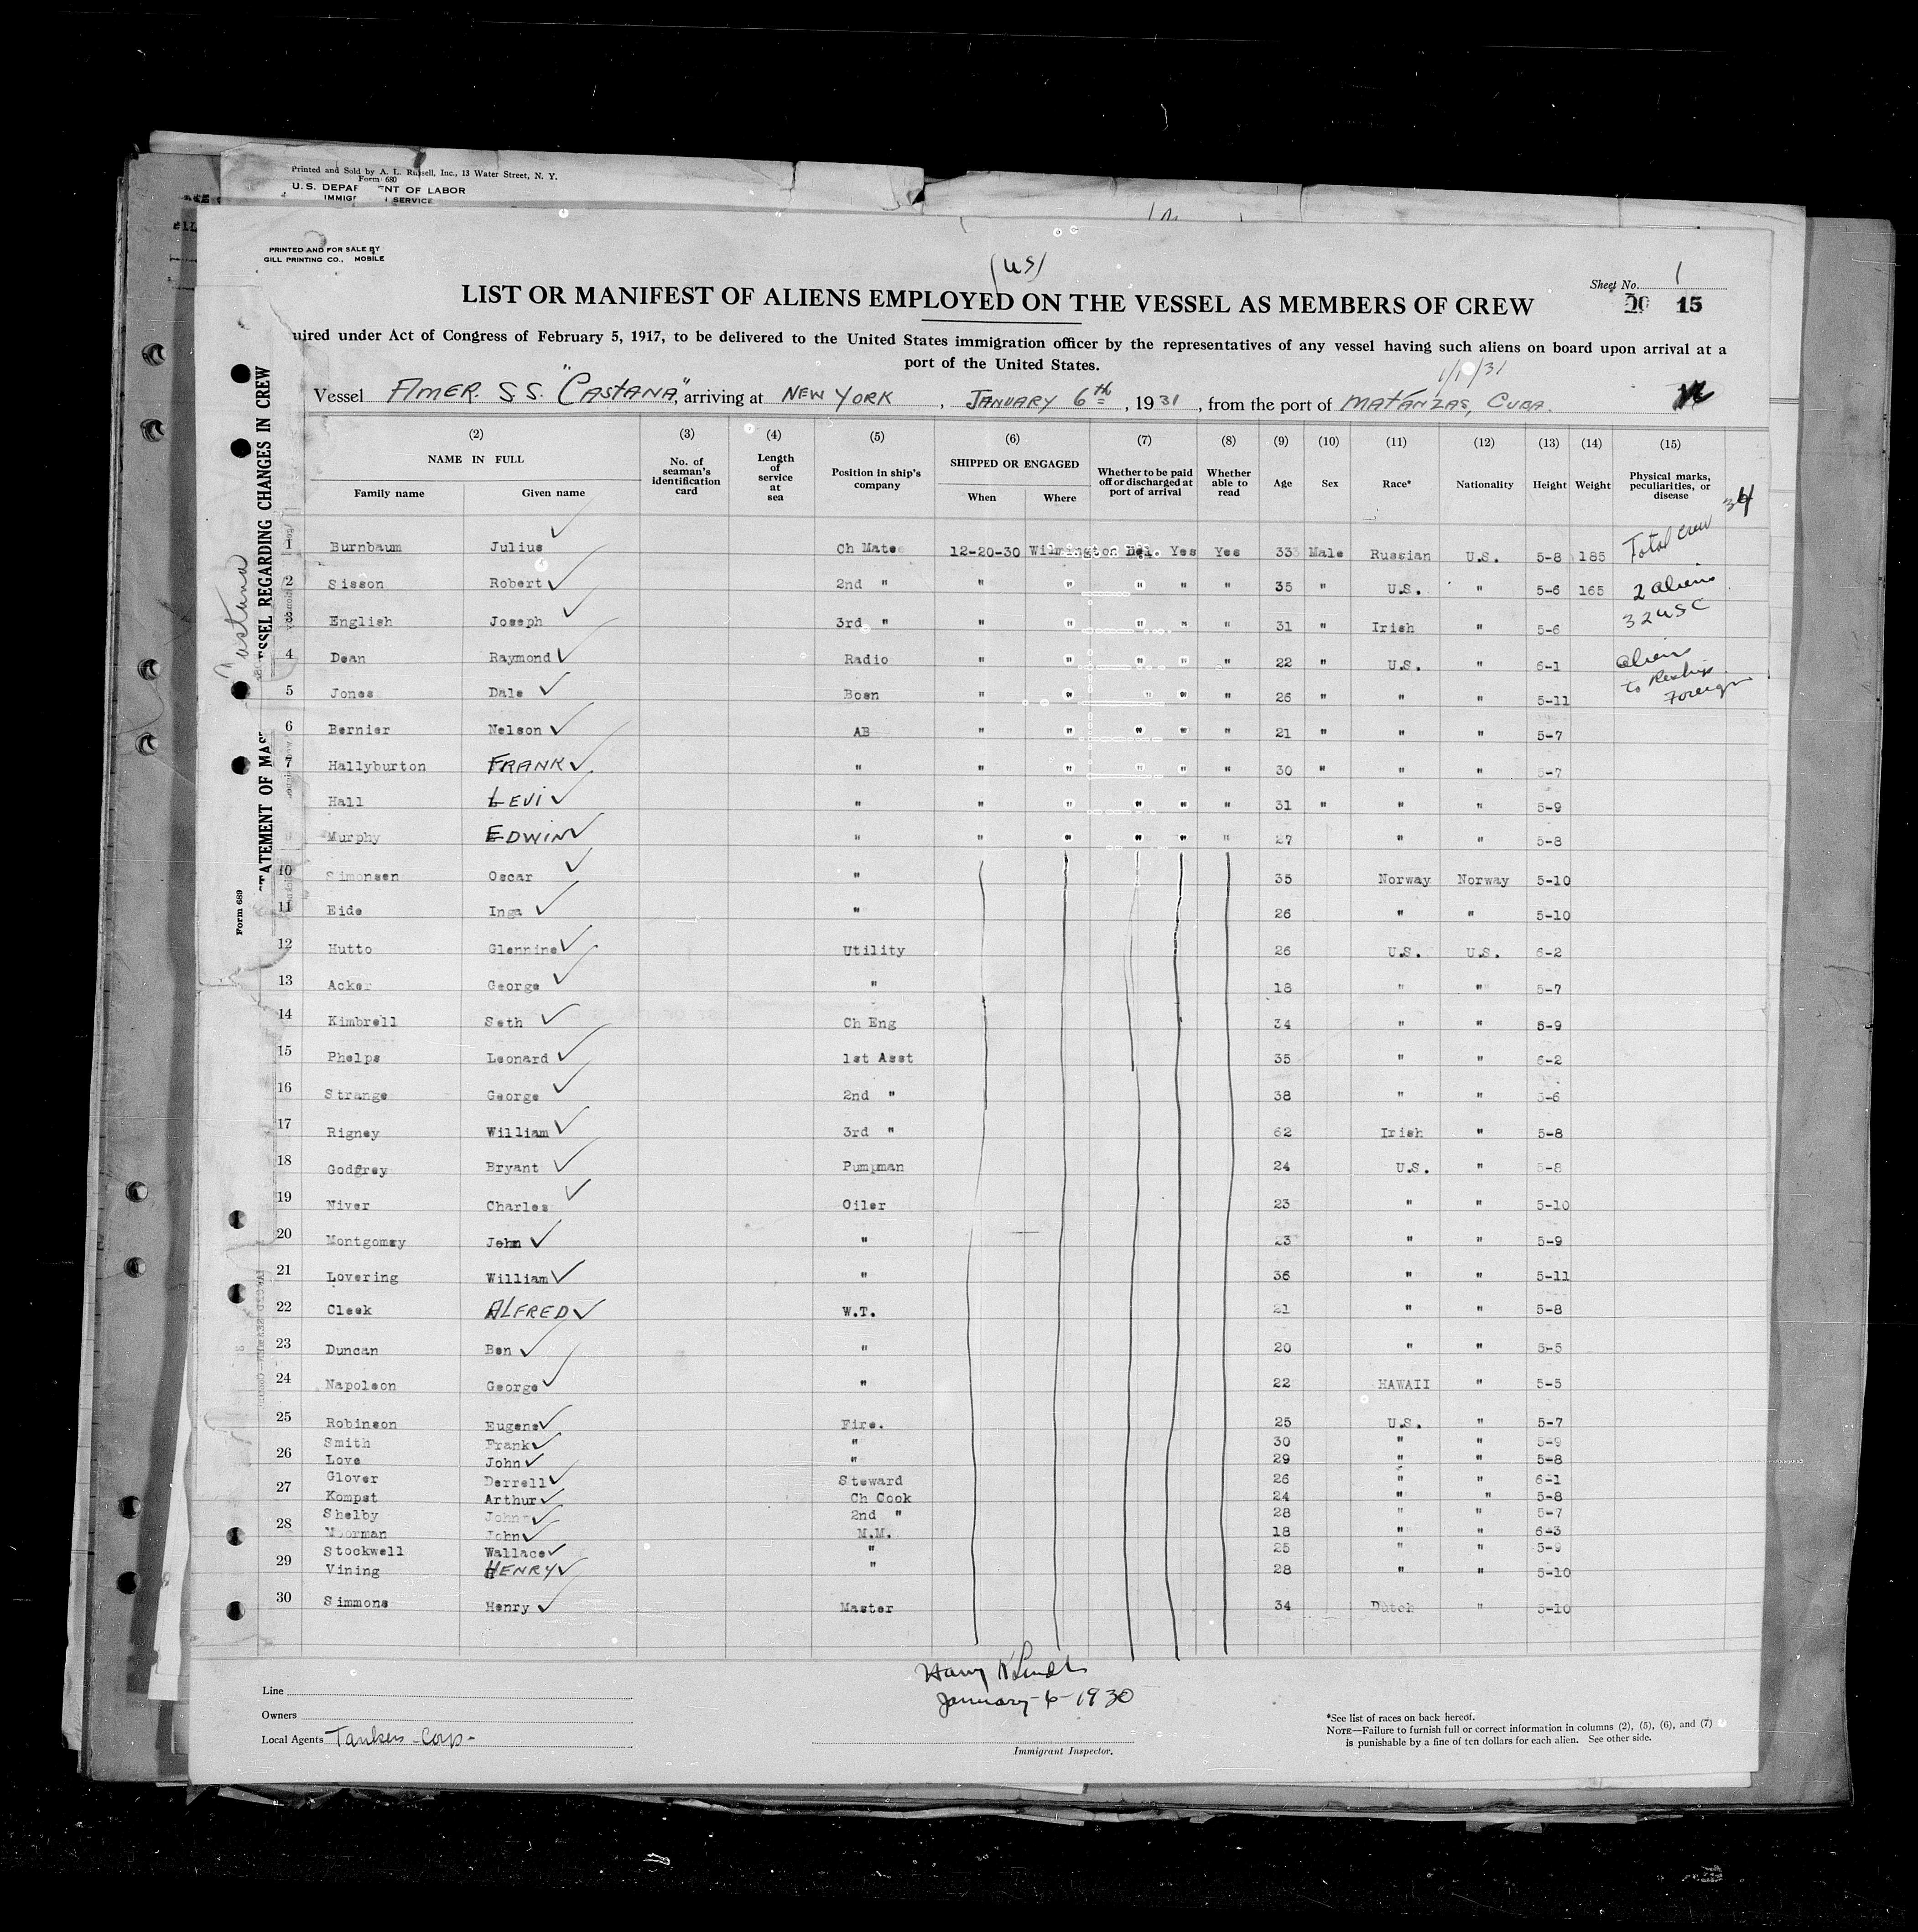 Printed and Sold by A. L. Russell, Inc., 13 Water Street, N. Y.
Form 680
U.S. DEPAR NT OF LABOR
IMMIG N SERVICE
PRINTED AND FOR SALE BY
GILL PRINTING CO., MOBILE
(US)
Sheet No. 1
LIST OR MANIFEST OF ALIENS EMPLOYED ON THE VESSEL AS MEMBERS OF CREW
20 15
uired under Act of Congress of February 5, 1917, to be delivered to the United States immigration officer by the representatives of any vessel having such aliens on board upon arrival at a
port of the United States.
Vessel AMER. S.S. "CASTANA", arriving at NEW YORK, JANUARY 6th, 1931, from the port of MATANZAS, CUBA.
STATEMENT OF MAS ESSEL REGARDING CHANGES IN CREW
Castana
Form 689
(2) (3) (4) (5) (6) (7) (8) (9) (10) (11) (12) (13) (14) (15)
NAME IN FULL No. of seaman's identification card Length of service at sea Position in ship's company SHIPPED OR ENGAGED Whether to be paid off or discharged at port of arrival Whether able to read Age Sex Race* Nationality Height Weight Physical marks, peculiarities, or disease
Family name Given name When Where
34
1 Burnbaum Julius Ch Mate 12-20-30 Wilmington Del. Yes Yes 33 Male Russian U.S. 5-8 185 Total crew
2 Sisson Robert 2nd " " " " " " 35 " U.S. " 5-6 165 2 aliens
32 USC
3 English Joseph 3rd " " " " " " 31 " Irish " 5-6
4 Dean Raymond Radio " " " " " 22 " U.S. " 6-1 aliens
5 Jones Dale Bosn " " " " " 26 " " " 5-11 to Reship Foreign
6 Bernier Nelson AB " " " " " 21 " " " 5-7
7 Hallyburton FRANK " " " " " " 30 " " " 5-7
Hall LEVI " " " " " " 31 " " " 5-9
Murphy EDWIN " " " " " " 27 " " 5-8
10 Simonsen Oscar " 35 Norway Norway 5-10
11 Eide Inga " 26 " " 5-10
12 Hutto Glennine Utility 26 U.S. U.S. 6-2
13 Acker George " 18 " " 5-7
14 Kimbrell Seth Ch Eng 34 " " 5-9
15 Phelps Leonard 1st Asst 35 " " 6-2
16 Strange George 2nd " 38 " " 5-6
17 Rigney William 3rd " 62 Irish " 5-8
18 Godfrey Bryant Pumpman 24 U.S. " 5-8
19 Niver Charles Oiler 23 " " 5-10
20 Montgomey John " 23 " " 5-9
21 Lovering William " 36 " " 5-11
22 Cleek ALFRED W.T. 21 " " 5-8
23 Duncan Ben " 20 " " 5-5
24 Napoleon George " 22 HAWAII " 5-5
25 Robinson Eugene Fire. 25 U.S. " 5-7
Smith Frank " 30 " " 5-9
26 Love John " 29 " " 5-8
Glover Derrell Steward 26 " " 6-1
27 Kompst Arthur Ch Cook 24 " " 5-8
Shelby John 2nd " 28 " " 5-7
28 Moorman John M.M. 18 " " 6-3
Stockwell Wallace " 25 " " 5-9
29 Vining HENRY " 28 " " 5-10
30 Simmons Henry Master 34 Dutch " 5-10
January-6-1930
Line
Owners
Local Agents Tankers Corp-
Immigrant Inspector.
*See list of races on back hereof.
NOTE—Failure to furnish full or correct information in columns (2), (5), (6), and (7)
is punishable by a fine of ten dollars for each alien. See other side.